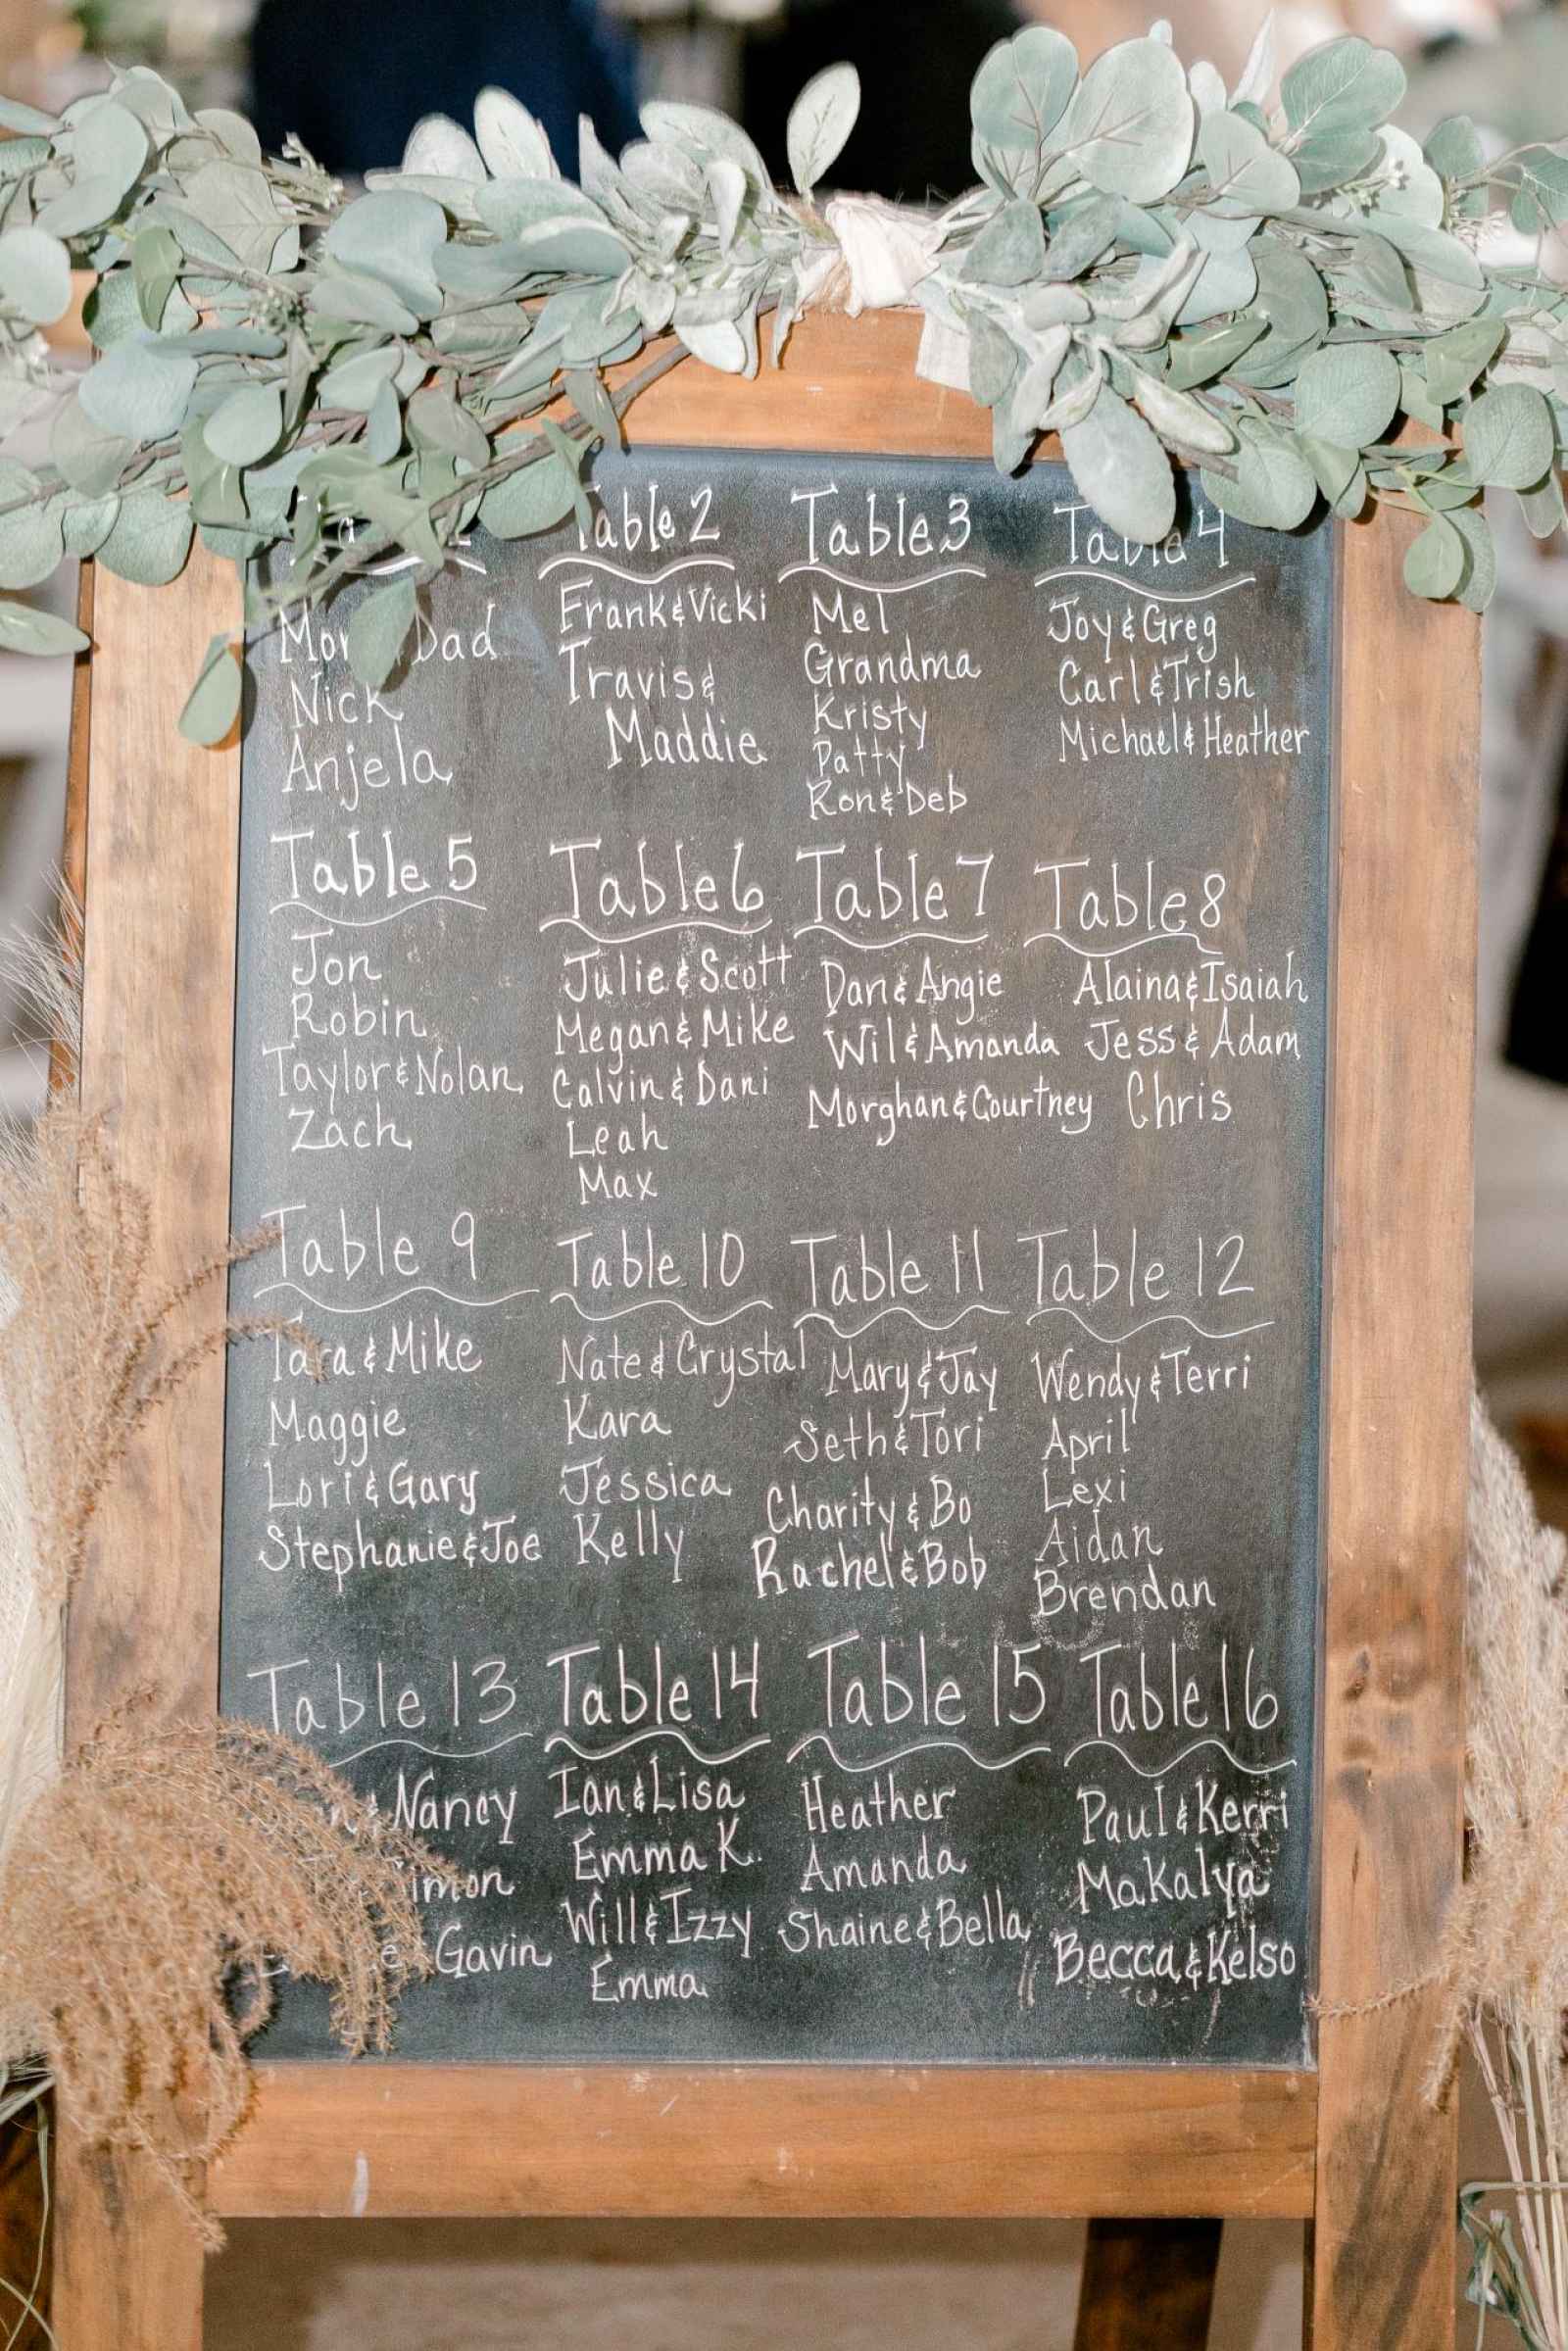 Table 2
Frank & Vicki
Travis &
Maddie
Table 3
Mel
Grandma
Kristy
Patty
Ron & Deb
Table 4
Joy & Greg
Carl & Trish
Michael & Heather
Dad
Nick
Anjela
Table 5
Jon
Robin
Taylor & Nolan
Zach
Table 6
Julie & Scott
Megan & Mike
Calvin & Dani
Leah
Max
Table 7
Dan & Angie
Wil & Amanda
Morghan & Courtney
Table 8
Alaina & Isaiah
Jess & Adam
Chris
Table 9
Tara & Mike
Maggie
Lori & Gary
Stephanie & Joe
Table 10
Nate & Crystal
Kara
Jessica
Kelly
Table 11
Mary & Jay
Seth & Tori
Charity & Bo
Rachel & Bob
Table 12
Wendy & Terri
April
Lexi
Aidan
Brendan
Table 13
& Nancy
& Gavin
Table 14
Ian & Lisa
Emma K.
Will & Izzy
Emma
Table 15
Heather
Amanda
Shaine & Bella
Table 16
Paul & Kerri
Makalya
Becca & Kelso